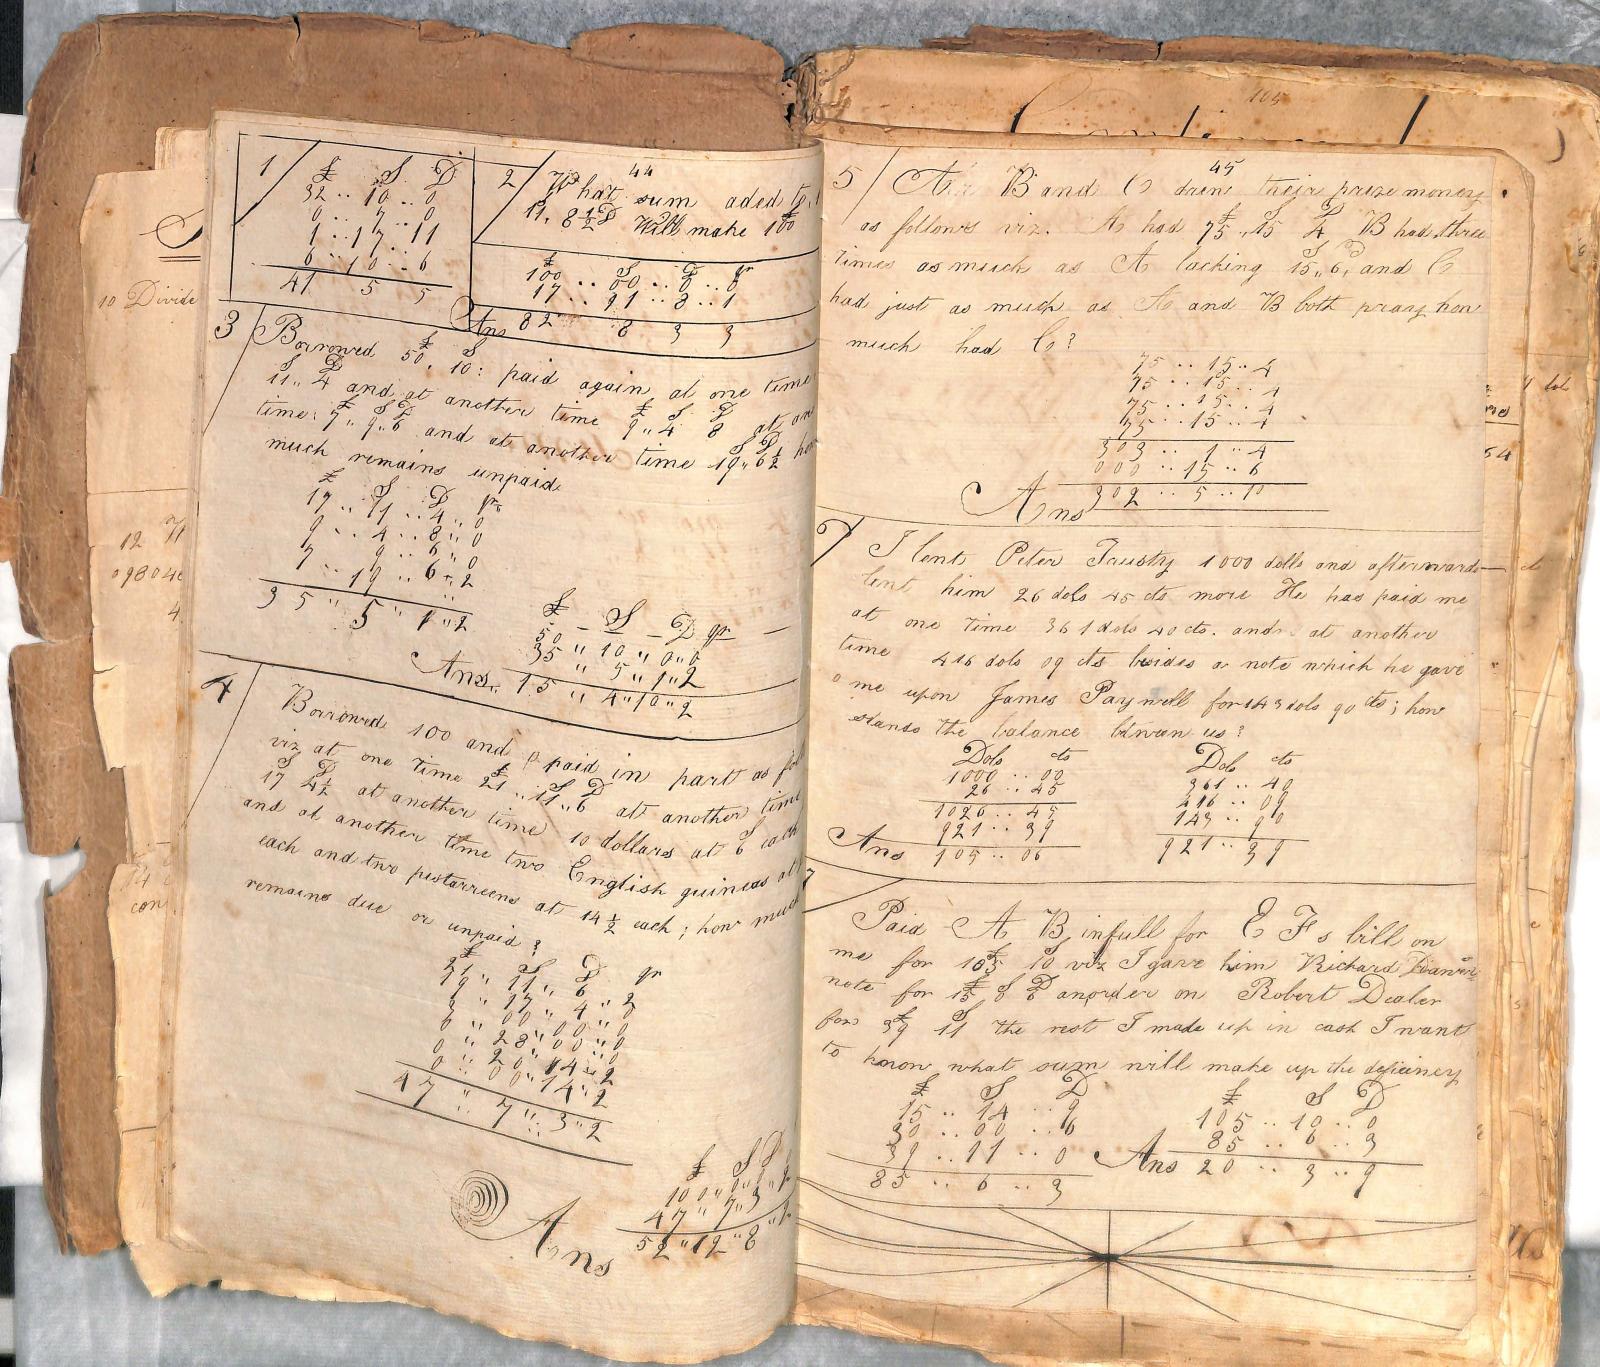 44
1
£ S D
32 .. 10 .. 0
0 .. 7 .. 0
1 .. 17 .. 11
6 .. 10 .. 6
41 5 5
2
What sum aded to
11 .. 8 1/2 Will make 100
£ S D qr
100 .. 00 .. 0 .. 0
17 .. 11 .. 8 .. 1
Ans 82 8 3 3
3
Borrowed 50 .. 10 : paid again at one time
11 .. 4 and at another time 9 .. 4 8 at an
time : 7 .. 9 .. 6 and at another time 19 .. 6 1/2 how
much remains unpaid
£ S D qr
17 .. 11 .. 4 .. 0
9 .. 4 .. 8 .. 0
7 9 .. 6 .. 0
19 .. 6 .. 2
35 " 5 " 1 " 2
£ - S - D qr
50 " 10 " 0 " 0
35 " 5 " 1 " 2
Ans. 15 " 4 " 10 " 2
4
Borrowed 100 and paid in part as foll
viz at one time 21 .. 11 .. 6 at another time
17 4 1/2 at another time 10 dollars at 6 each
and at another time two English guineas at
each and two pistarreens at 14 1/2 each ; how much
remains due or unpaid ?
£ S D qr
21 " 11 " 6
17 " 4 " 2
3 " 00 " 00 " 0
28 " 00 " 0
0 " 00 " 14 " 2
47 " 7 " 3 " 2
£ S D
100 " 0 " 0
47 " 7 " 3
Ans 52 " 12 " 8
10 Divide
12
09804
4
con
105
45
5
A B and C drew their prize money
as follows viz. A had 75 .. 15 4 B had three
times as much as A lacking 15 .. 6, and C
had just as much as A and B both pray how
much had C ?
75 .. 15 .. 4
75 .. 15 .. 4
75 .. 15 .. 4
75 .. 15 .. 4
303 .. 1 .. 4
000 .. 15 .. 6
Ans 302 .. 5 .. 10
6
I lent Peter Trusty 1000 dolls and afterwards
lent him 26 dols 45 cts more He has paid me
at one time 361 dols 40 cts. and at another
time 416 dols 09 cts besides a note which he gave
me upon James Paywell for 143 dols 90 cts ; how
stands the balance btwan us ?
Dols cts
1000 .. 00
26 .. 45
1026 .. 45
921 .. 39
Ans 105 .. 06
Dols cts
361 .. 40
416 .. 09
143 .. 90
921 .. 39
7
Paid A B in full for E Fs bill on
me for 105 10 viz I gave him Richard
note for an order on Robert Dealer
for 39 11 the rest I made up in cash I want
to know what sum will make up the deficiency
£ S D
15 .. 14 .. 9
30 .. 00 .. 6
39 .. 11 .. 0
85 .. 6 .. 3
£ S D
105 .. 10 .. 0
85 .. 6 .. 3
Ans 20 .. 3 .. 9